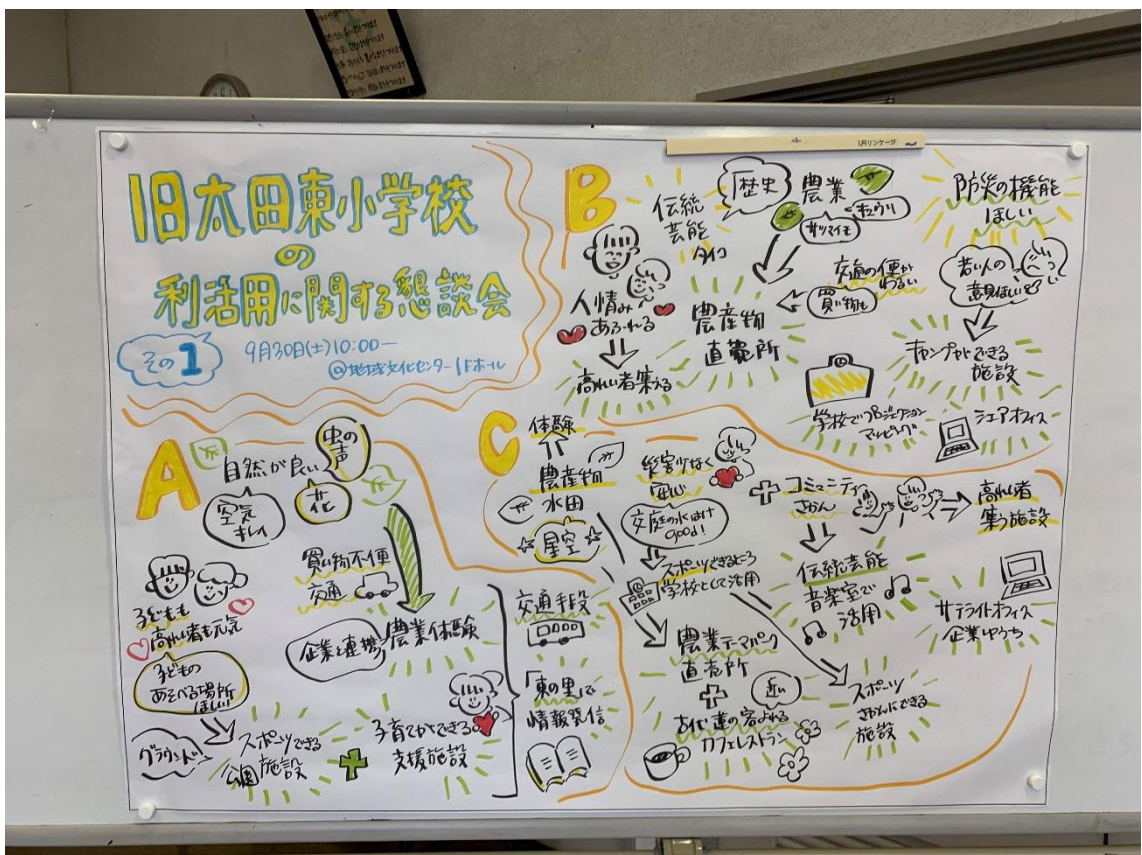 旧太田東小学校
の
利活用に関する懇談会
その1
9月30日(土)10:00―
@地域文化センター1Fホール
A
自然が良い
虫の声
空気
キレイ
花
買い物不便
交通
子どもも
高れい者も元気
子どもの
あそべる場所
ほしい
企業と連携
農業体験
グラウンド
スポーツできる
公園施設
子育てができる
支援施設
交通手段
「東の里」で
情報発信
B
伝統
芸能
タイコ
歴史
農業
キュウリ
サツマイモ
防災の機能
ほしい
人情み
あふれる
高れい者集える
農産物
直売所
交通の便が
わるい
買い物も
若い人の
意見ほしいな
キャンプなどできる
施設
学校でプロジェクション
マッピング
シェアオフィス
C
体験
農産物
水田
星空
災害少なく
安心
校庭の水はけ
good!
スポーツできるところ
学校として活用
コミュニティ
さかん
高れい者
集う施設
伝統芸能
音楽室で
活用
サテライトオフィス
企業ゆうち
農業テーマパーク
直売所
近い
古代蓮の宿よれる
カフェレストラン
スポーツ
さかんにできる
施設
URリンケージ